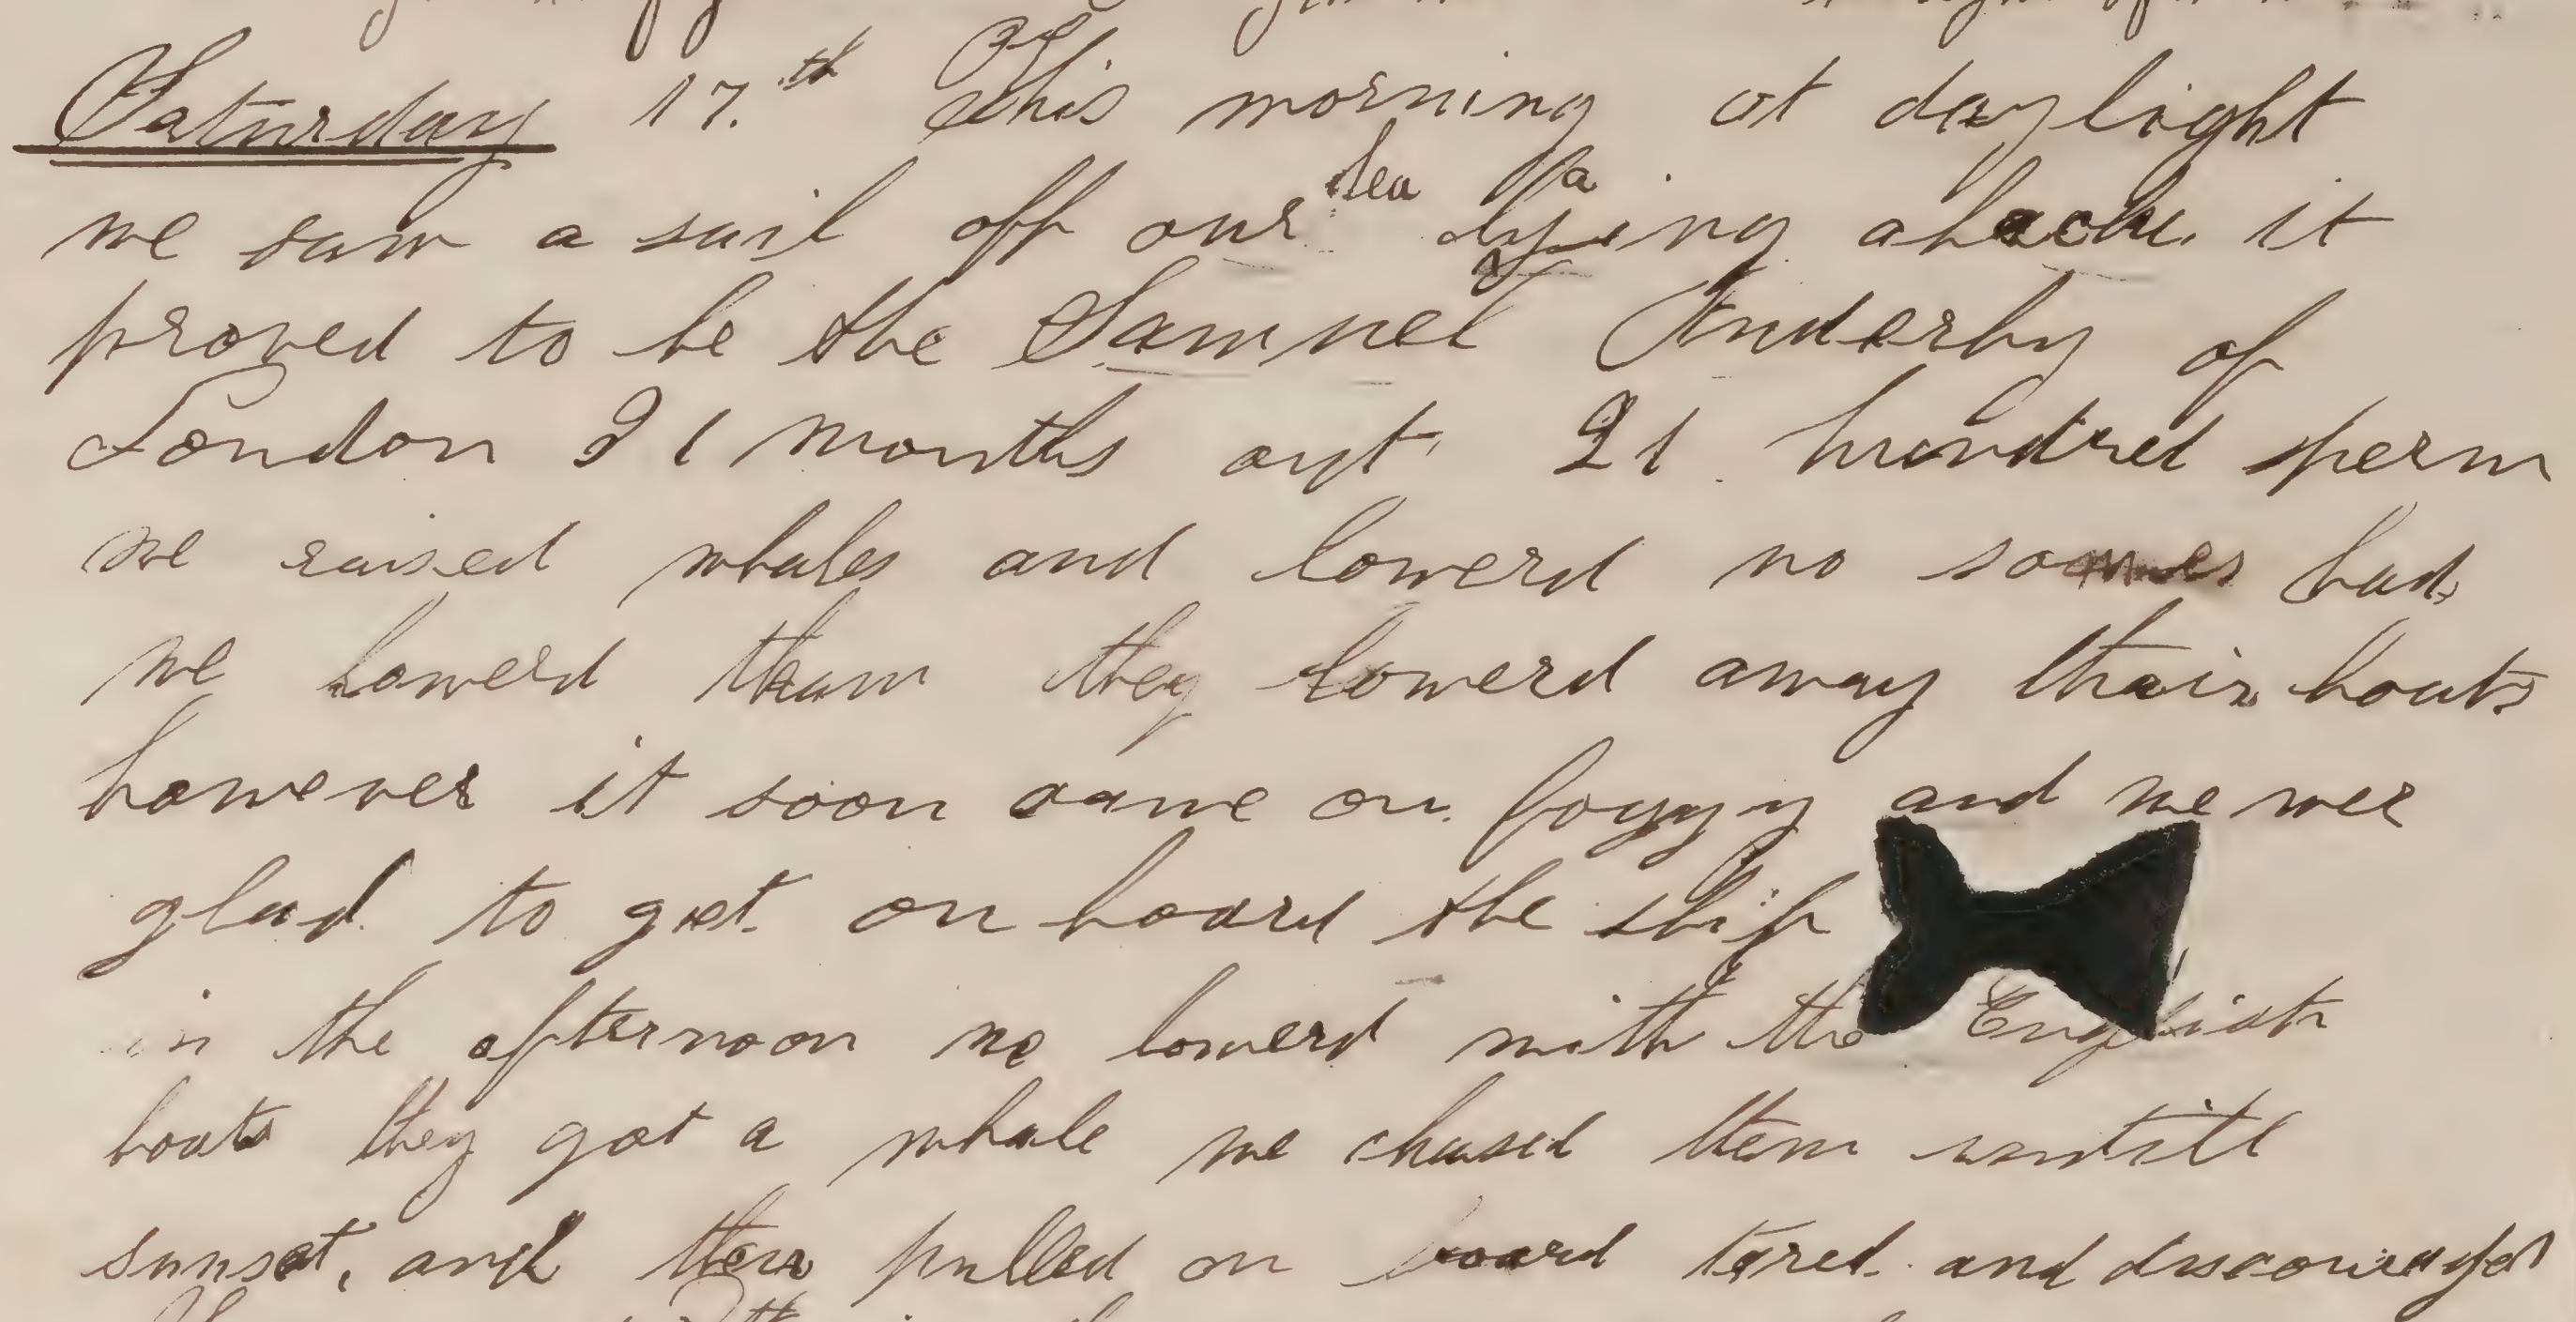 Saturday 17.th This morning at daylight
we saw a sail off our lea lying aback. it
proved to be the Samuel Enderby of
London 21 months out 21 hundred sperm
we raised whales and lowerd no sooner had
we lowerd tham they lowerd away thair boats
however it soon came on foggy and we wer
glad to get on board the ship
in the afternoon we lowerd with the English
boats they got a whale we chased them untill
sunset, and then pulled on board tired and discouraged